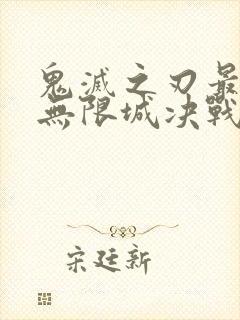 鬼滅之刃最
無限城决戰
宋廷新